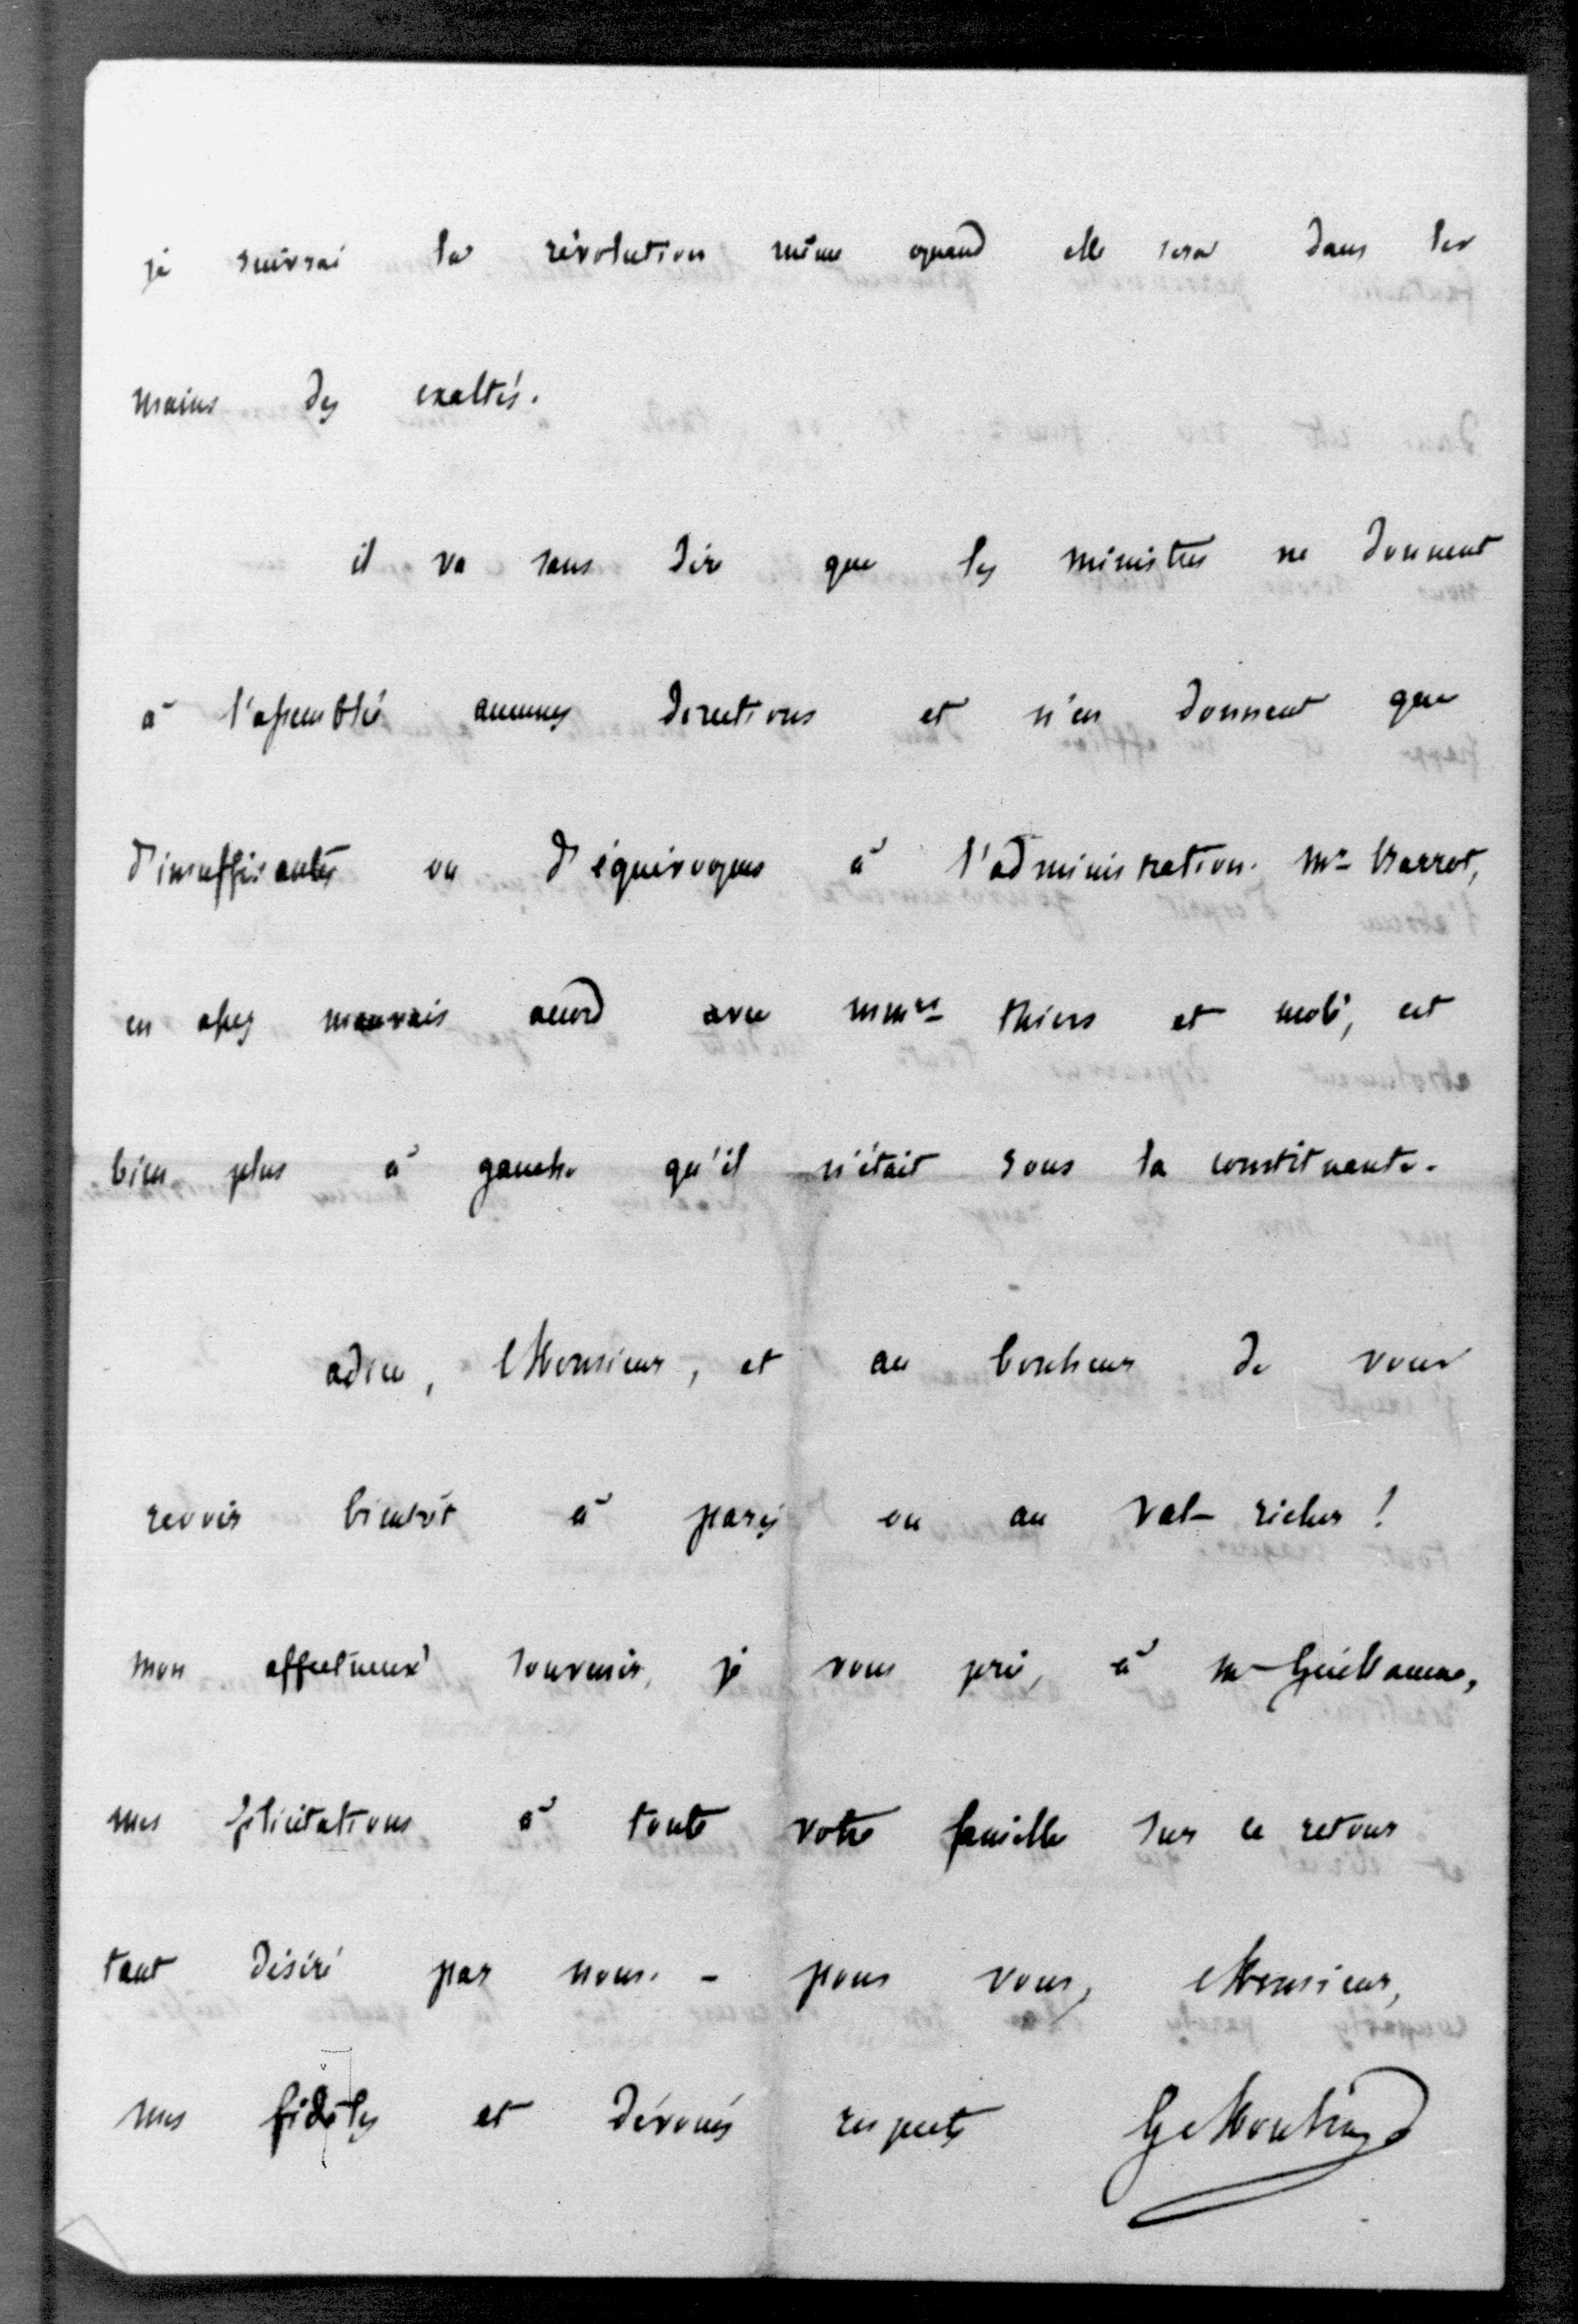 je suivrai la révolution même quand elle sera dans les
mains des exaltés.
il va sans dire que les ministres ne donnent
à l'assemblée aucunes directions et n'en donnent que
d'insuffisantes ou d'équivoques à l'administration. Mr Barrot,
en assez mauvais accord avec mmrs thiers et molé, est
bien plus à gauche qu'il n'était sous la constituante.
adieu, Monsieur, et au bonheur de vous
revoir bientôt à paris ou au val-richer !
mon affectueux souvenir, je vous prie, à mr Guillaume,
mes félicitations à toute votre famille sur ce retour
tant désiré par nous. - pour vous, Monsieur,
mes fidèles et dévoués respects